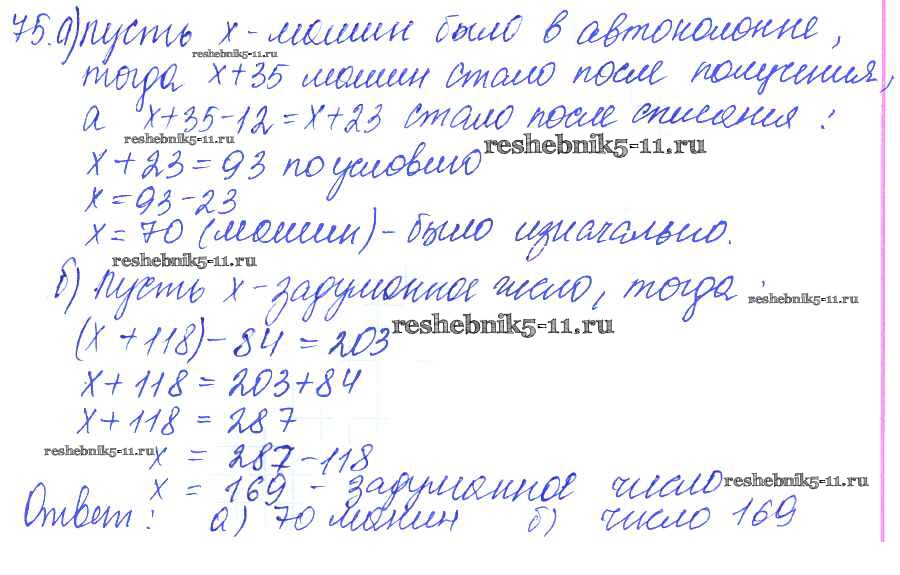 75. а) Пусть х - машин было в автоколонне,
reshebnik5-11.ru
тогда х+35 машин стало после получения,
а х+35-12=х+23 стало после списания:
reshebnik5-11.ru
reshebnik5-11.ru
х+23=93 по условию
х=93-23
х=70 (машин) - было изначально.
reshebnik5-11.ru
б) Пусть х - задуманное число, тогда:
reshebnik5-11.ru
reshebnik5-11.ru
(х+118)-84=203
х+118=203+84
х+118=287
reshebnik5-11.ru
х = 287-118
х = 169 - задуманное число
reshebnik5-11.ru
Ответ: а) 70 машин б) число 169